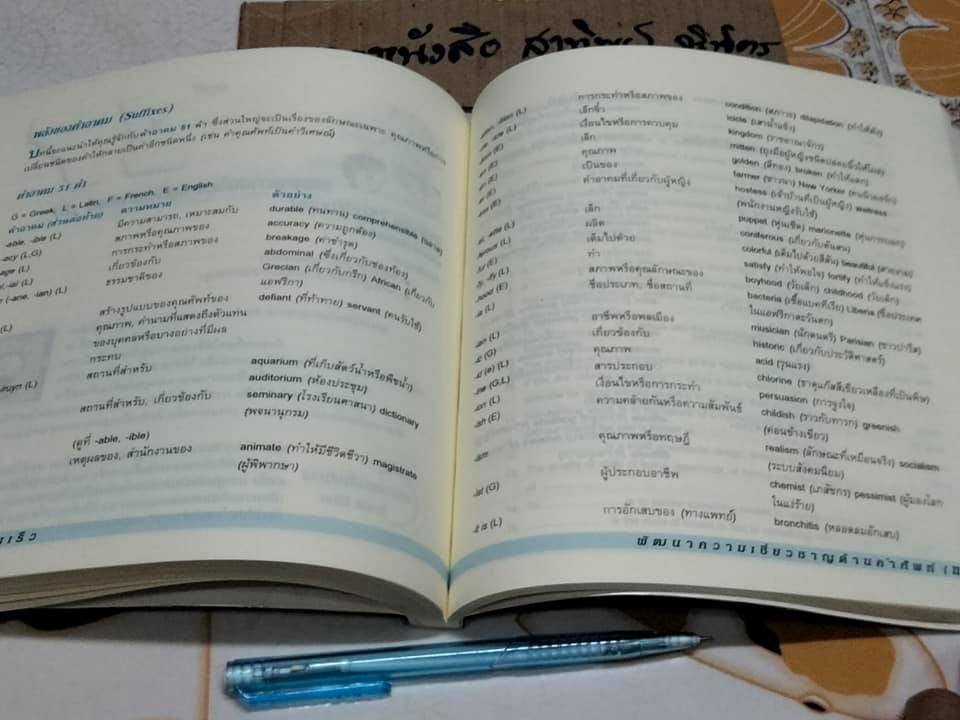 หนังสือ
พลังของคำอาคม (Suffixes)
บทนี้จะแนะนำให้คุณรู้จักกับคำอาคม 51 คำ ซึ่งส่วนใหญ่จะเป็นเรื่องของลักษณะเฉพาะ คุณภาพหรือการ
เปลี่ยนชนิดของคำให้กลายเป็นคำอีกชนิดหนึ่ง (เช่น คำคุณศัพท์เป็นคำวิเศษณ์)
คำอาคม 51 คำ
G = Greek, L = Latin, F = French, E = English
คำอาคม (ส่วนต่อท้าย) ความหมาย ตัวอย่าง
-able, -ible (L) มีความสามารถ, เหมาะสมกับ durable (ทนทาน) comprehensible
-acy (L,G) สภาพหรือคุณภาพของ accuracy (ความถูกต้อง)
(L) การกระทำหรือสภาพของ breakage (ค่าชำรุด)
(L) เกี่ยวข้องกับ abdominal (ซึ่งเกี่ยวกับช่องท้อง)
(-ane, -ian) (L) ธรรมชาติของ Grecian (เกี่ยวกับกรีก) African (เกี่ยวกับ
แอฟริกา)
(L) สร้างรูปแบบของคุณศัพท์ของ defiant (ที่ท้าทาย) servant (คนรับใช้)
คุณภาพ, คำนามที่แสดงถึงตัวแทน
ของบุคคลหรือบางอย่างที่มีผล
กระทบ
(L) สถานที่สำหรับ aquarium (ที่เก็บสัตว์น้ำหรือพืชน้ำ)
auditorium (ห้องประชุม)
สถานที่สำหรับ, เกี่ยวข้องกับ seminary (โรงเรียนศาสนา) dictionary
(พจนานุกรม)
(ดูที่ -able, -ible)
เหตุผลของ, สำนักงานของ animate (ทำให้มีชีวิตชีวา) magistrate
(ผู้พิพากษา)
เร็ว
(L) การกระทำหรือสภาพของ condition (สภาวะ) dilapidation
(L) เล็กจิ๋ว icicle (เสาน้ำแข็ง)
(E) เงื่อนไขหรือการควบคุม kingdom (ราชอาณาจักร)
(E) เล็ก mitten
(E) คุณภาพ golden (สีทอง) broken (ทำให้แตก)
(E) เป็นของ farmer (ชาวนา) New Yorker
(E) คำอาคมที่เกี่ยวกับผู้หญิง hostess (เจ้าบ้านที่เป็นผู้หญิง) waitress
(พนักงานหญิงรับใช้)
(L) เล็ก puppet (หุ่นเชิด) marionette
(L) ผลิต coniferous (เกี่ยวกับต้นสน)
(E) เต็มไปด้วย colorful (เต็มไปด้วยสีสัน) beautiful (สวยงาม)
-fy (L) ทำ satisfy (ทำให้พอใจ) fortify (ทำให้แข็งแรง)
(E) สภาพหรือคุณลักษณะของ boyhood (วัยเด็ก) childhood (วัยเด็ก)
(L) ชื่อประเภท, ชื่อสถานที่ bacteria (เชื้อแบคทีเรีย) Liberia (ชื่อประเทศ
ในแอฟริกาตะวันตก)
(L) อาชีพหรือพลเมือง musician (นักดนตรี) Parisian (ชาวปารีส)
(G) เกี่ยวข้องกับ historic (เกี่ยวกับประวัติศาสตร์)
(L) คุณภาพ acid (รุนแรง)
(G,L) สารประกอบ chlorine
(L) เงื่อนไขหรือการกระทำ persuasion (การจูงใจ)
-ish (E) ความคล้ายกันหรือความสัมพันธ์ childish (ราวกับทารก) greenish
(ค่อนข้างเขียว)
-ism คุณภาพหรือทฤษฎี realism (ลักษณะที่เหมือนจริง) socialism
(ระบบสังคมนิยม)
-ist (G) ผู้ประกอบอาชีพ chemist (เภสัชกร) pessimist (ผู้มองโลก
ในแง่ร้าย)
(L) การอักเสบของ (ทางแพทย์) bronchitis (หลอดลมอักเสบ)
พัฒนาความเชี่ยวชาญด้านคำศัพท์